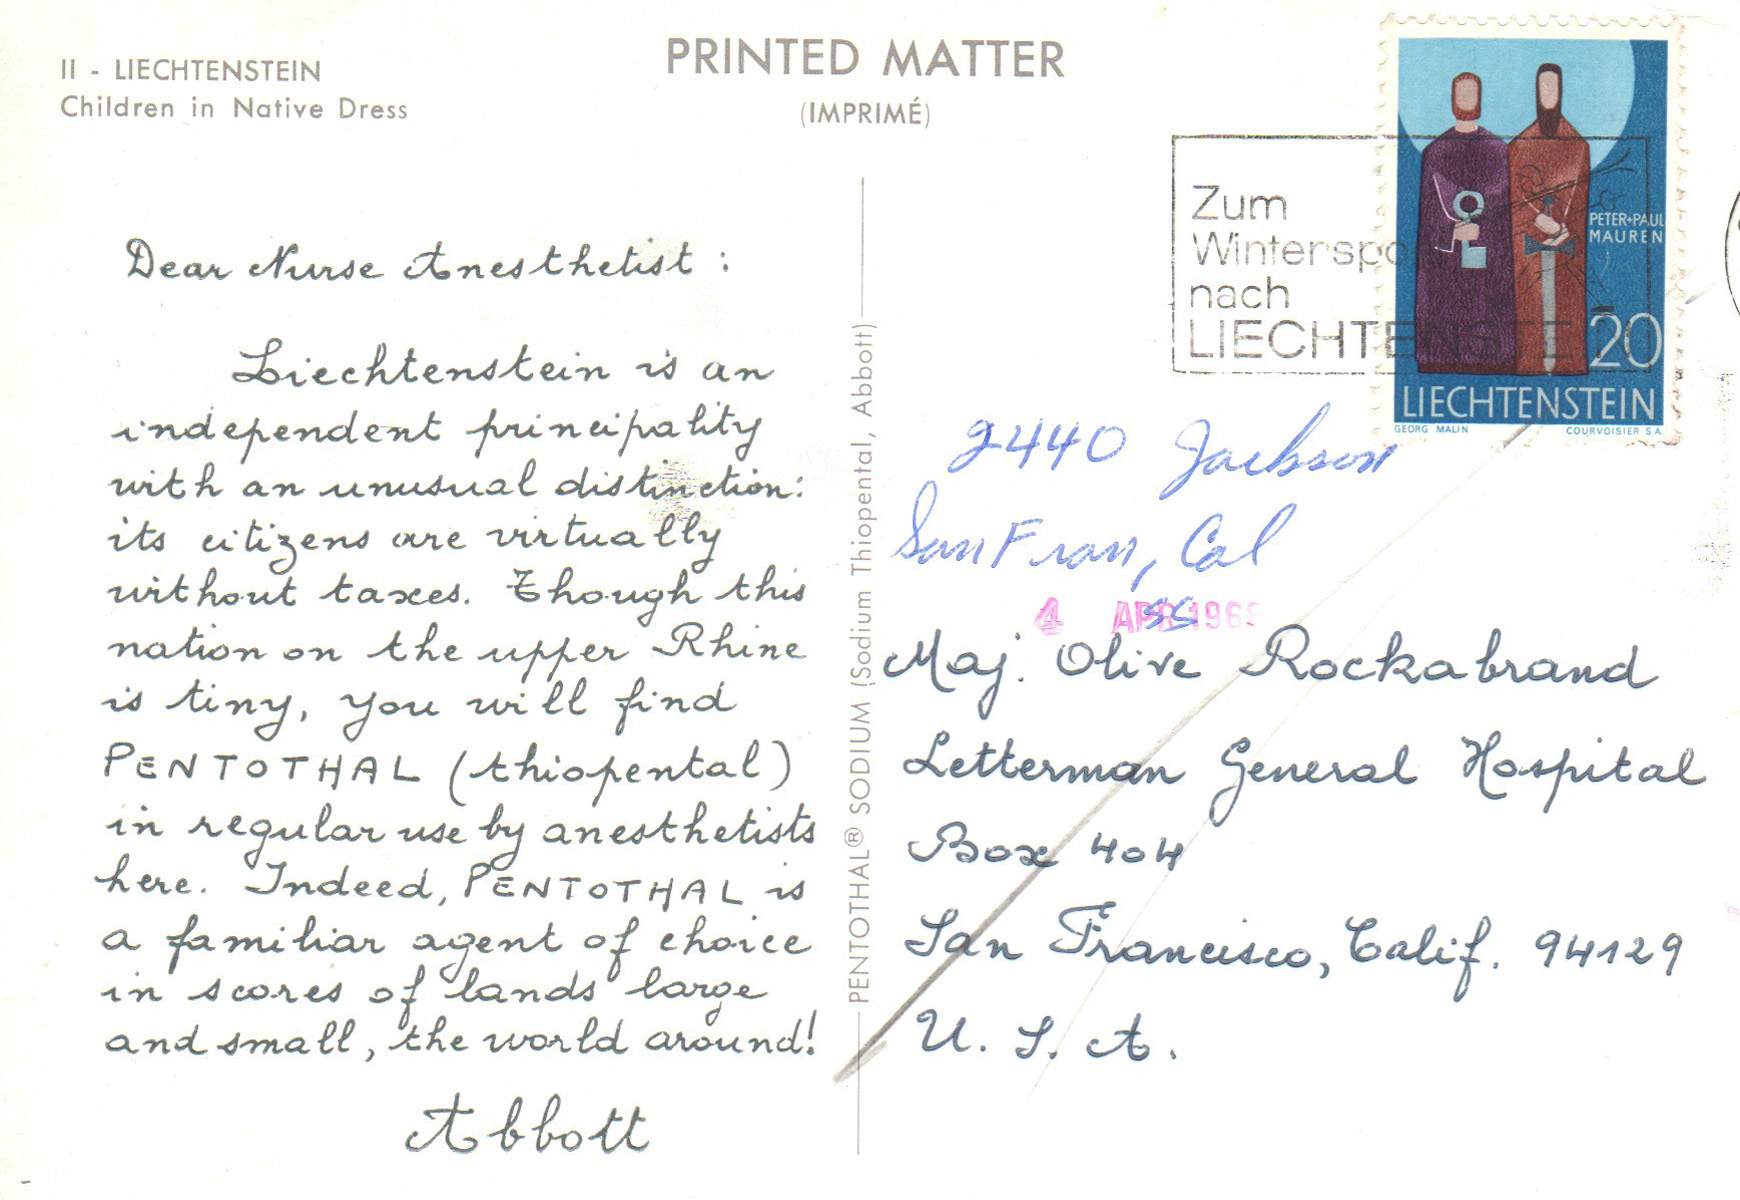 II - LIECHTENSTEIN
Children in Native Dress
PRINTED MATTER
(IMPRIMÉ)
Dear Nurse Anesthetist :
Liechtenstein is an
independent principality
with an unusual distinction:
its citizens are virtually
without taxes. Though this
nation on the upper Rhine
is tiny, you will find
PENTOTHAL (thiopental)
in regular use by anesthetists
here. Indeed, PENTOTHAL is
a familiar agent of choice
in scores of lands large
and small, the world around!
Abbott
PENTOTHAL® SODIUM (Sodium Thiopental, Abbott)
Zum
Winterspo
nach
LIECHTENSTE
PETER+PAUL
MAUREN
20
LIECHTENSTEIN
GEORG MALIN COURVOISIER S.A.
2440 Jackson
San Fran, Cal
4 APR 196
Maj. Olive Rockabrand
Letterman General Hospital
Box 404
San Francisco, Calif. 94129
U. S. A.